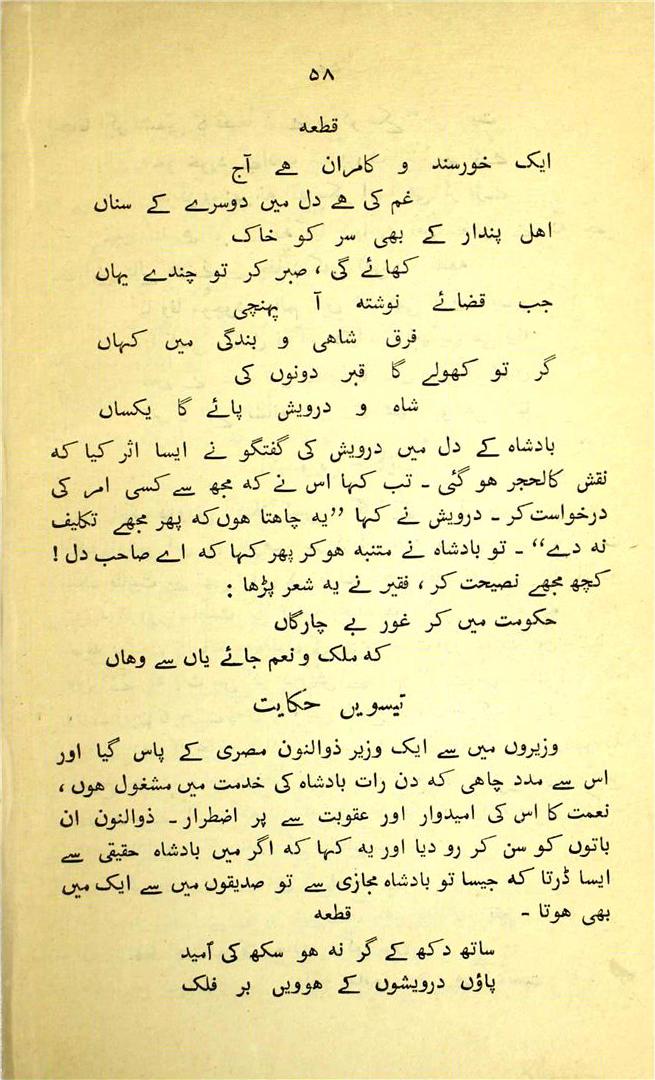 ۵۸
قطعه
ایک خورسند و کامران ہے آج
غم کی ہے دل میں دوسرے کے سناں
اھل پندار کے بھی سر کو خاک
کھائے گی ، صبر کر تو چندے یہاں
جب قضائے نوشته آ پہنچی
فرق شاھی و بندگی میں کہاں
گر تو کھولے گا قبر دونوں کی
شاہ و درویش پائے گا یکساں
بادشاہ کے دل میں درویش کی گفتگو نے ایسا اثر کیا که
نقش کالحجر ہو گئی ۔ تب کہا اس نے که مجھ سے کسی امر کی
درخواست کر ۔ درویش نے کہا ”یه چاہتا ہوں که پھر مجھے تکلیف
نه دے“ ۔ تو بادشاہ نے متنبه ہو کر پھر کہا که اے صاحب دل !
کچھ مجھے نصیحت کر ، فقیر نے یه شعر پڑھا :
حکومت میں کر غور بے چارگاں
که ملک و نعم جائے یاں سے وھاں
تیسویں حکایت
وزیروں میں سے ایک وزیر ذوالنون مصری کے پاس گیا اور
اس سے مدد چاہی که دن رات بادشاہ کی خدمت میں مشغول ہوں ،
نعمت کا اس کی امیدوار اور عقوبت سے پر اضطرار ۔ ذوالنون ان
باتوں کو سن کر رو دیا اور یه کہا که اگر میں بادشاہ حقیقی سے
ایسا ڈرتا که جیسا تو بادشاہ مجازی سے تو صدیقوں میں سے ایک میں
بھی ہوتا ۔
قطعه
ساتھ دکھ کے گر نه ہو سکھ کی اُمید
پاؤں درویشوں کے ہوویں بر فلک